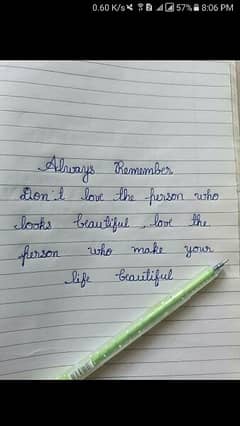 0.60 K/s 57% 8:06 PM
Always Remember
Don't love the person who
looks beautiful, love the
person who make your
life beautiful